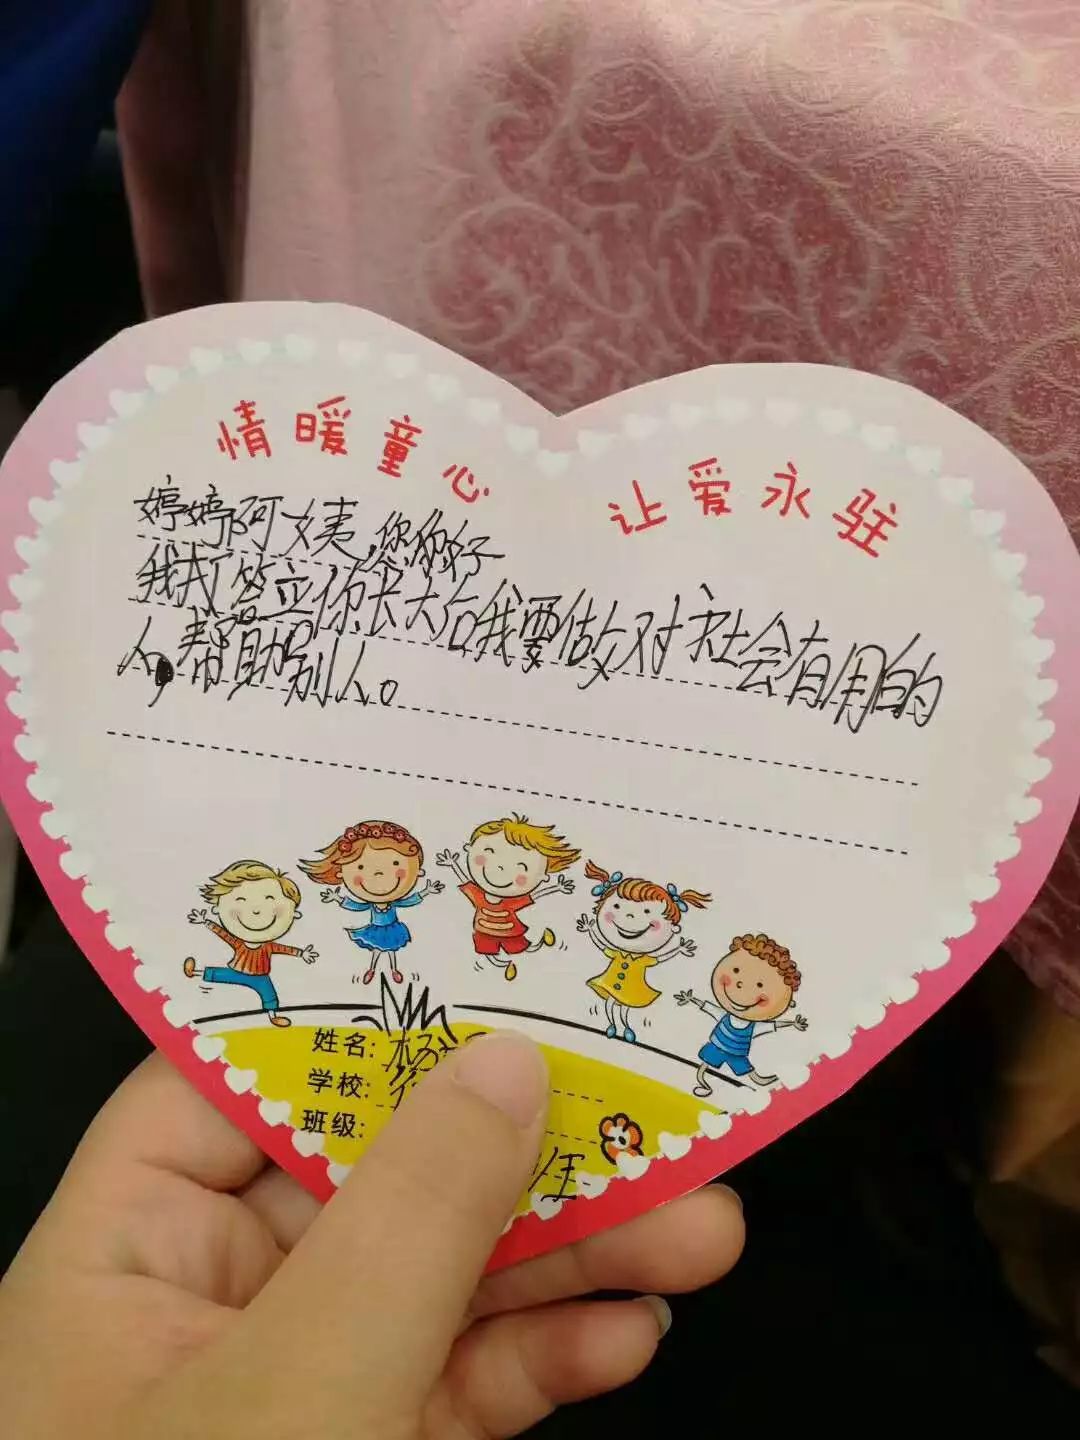 情暖童心 让爱永驻
婷婷阿姨,您你好
我我答应你长大后我要做对社会有用的
人,帮助别人。
姓名:杨
学校:
班级:
班